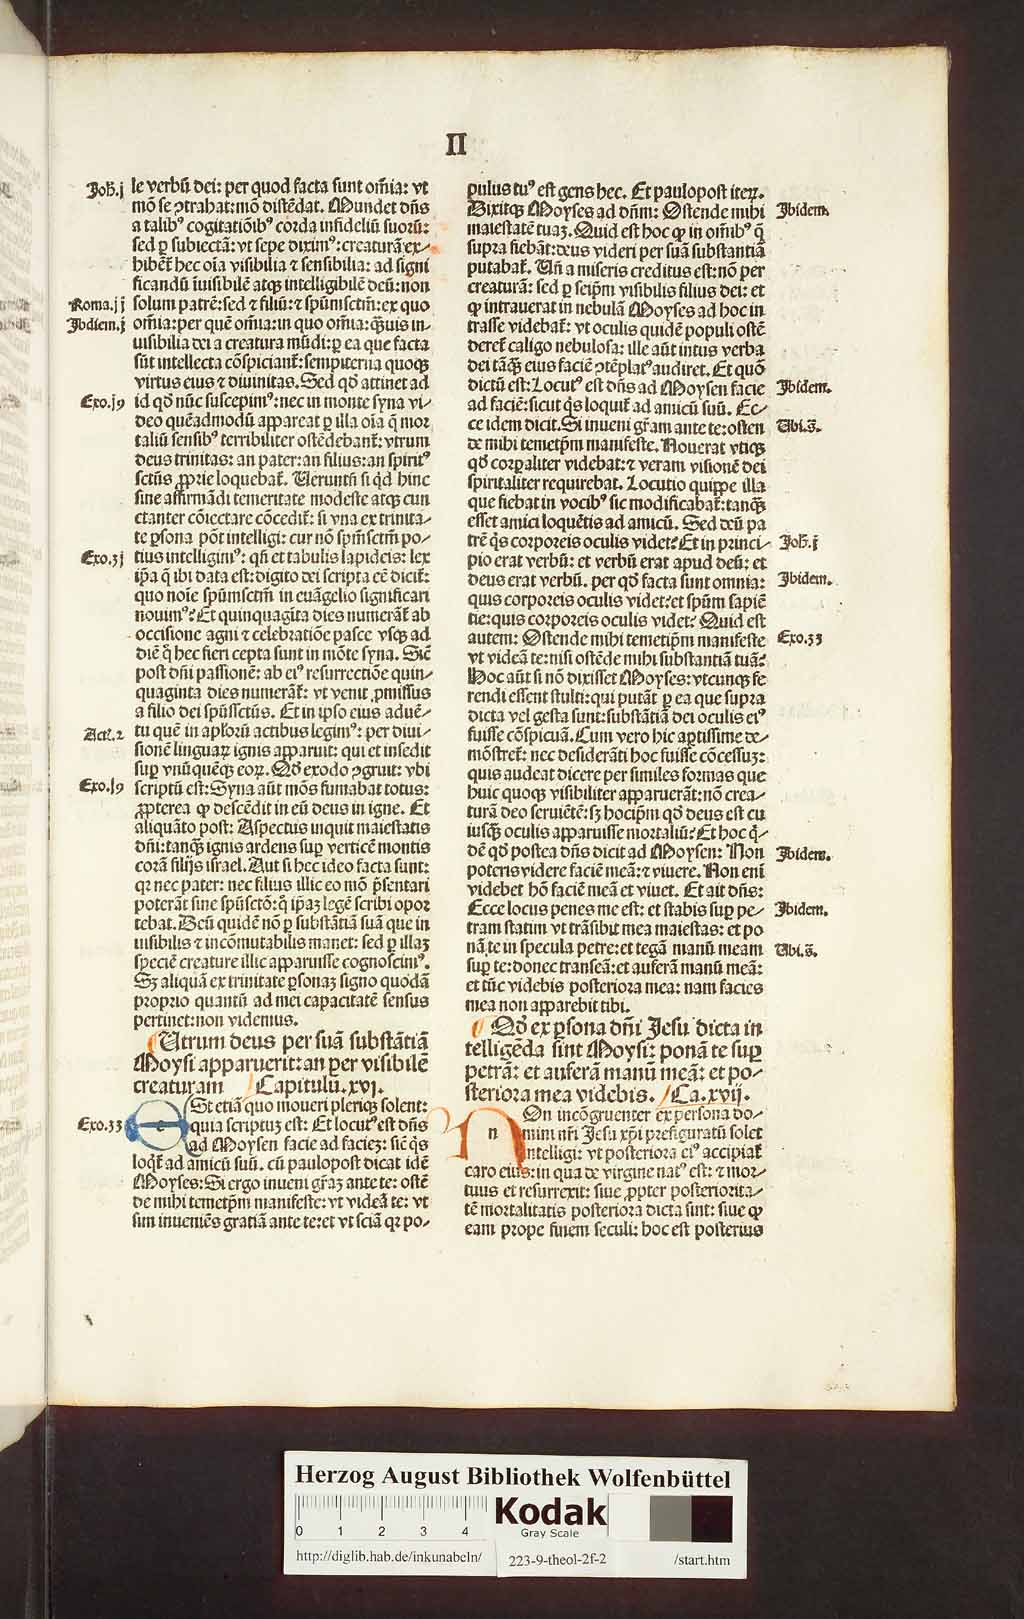 II
Joh̄.j
le verbū dei: per quod facta sunt om̄ia: vt
mō se ꝯtrahat: mō distēdat. Mundet dn̄s
a talibꝰ cogitatiōibꝰ corda infideliū suorū:
sed ꝑ subiectā: vt sepe diximꝰ: creaturā ex-
hibēt hec oīa visibilia ⁊ sensibilia: ad signi
ficandū īuisibilē atqꝫ intelligibilē deū: non
Roma.jj
solum patrē: sed ⁊ filiū: ⁊ spūmsctm̄: ex quo
Jbdiem.j
om̄ia: per quē om̄ia: in quo om̄ia: qᷓuis in-
uisibilia dei a creatura mūdi: ꝑ ea que facta
sūt intellecta cōspiciant᷑: sempiterna quoqꝫ
virtus eius ⁊ diuinitas. Sed qd̓ attinet ad
Exo.j9
id qd̓ nūc suscepimꝰ: nec in monte syna vi-
deo quēadmodū appareat ꝑ illa oīa q̄ mor
taliū sensibꝰ terribiliter ostēdebant᷑: vtrum
deus trinitas: an pater: an filius: an spiritꝰ
sctūs ꝓprie loquebat᷑. Uerūtn̄ si qͥd hinc
sine affirmādi temeritate modeste atqꝫ cun
ctanter cōiectare cōcedit᷑: si vna ex trinita-
te ꝑsona pōt intelligi: cur nō spm̄sctm̄ po-
Exo.3j
tius intelligimꝰ: qn̄ et tabulis lapideis: lex
ip̄a q̄ ibi data est: digito dei scripta eē dicit᷑:
quo noīe spūmsctm̄ in euāgelio significari
nouimꝰ? Et quinquagīta dies numerāt᷑ ab
occisione agni ⁊ celebratiōe pasce vsqꝫ ad
diē q̄ hec fieri cepta sunt in mōte syna. Sic̄
post dn̄i passionē: ab eiꝰ resurrectiōe quin-
quaginta dies numerāt᷑: vt venit ꝓmissus
a filio dei spūssctūs. Et in ipso eius aduē-
Act.2
tu quē in apl̄orū actibus legimꝰ: per diui-
sionē linguarꝝ ignis apparuit: qui et insedit
suꝑ vnūquēqꝫ eorꝝ. Qd̓ exodo ꝯgruit: vbi
Exo.j9
scriptū est: Syna aūt mōs fumabat totus:
ꝓpterea ꝙ descēdit in eū deus in igne. Et
aliquāto post: Aspectus inquit maiestatis
dn̄i: tanqᷓꝫ ignis ardens suꝑ verticē montis
corā filijs israel. Aut si hec ideo facta sunt:
qꝛ nec pater: nec filius illic eo mō p̄sentari
poterāt sine spūsctō: q̄ ip̄aꝫ legē scribi opor
tebat. Deū quidē nō ꝑ substātiā suā que in
uisibilis ⁊ incōmutabilis manet: sed ꝑ illaꝫ
speciē creature illic apparuisse cognoscimꝰ.
Sꝫ aliquā ex trinitate ꝑsonaꝫ signo quodā
proprio quantū ad mei capacitatē sensus
pertinet: non videmus.
Utrum deus per suā substātiā
Moysi apparuerit: an per visibilē
creaturam Capitulū.xvi.
e
Exo.33
St etiā quo moueri pleriqꝫ solent:
quia scriptuꝫ est: Et locutꝰ est dn̄s
ad Moysen facie ad facieꝫ: sic̄ qͥs
loqͥt᷑ ad amicū suū. cū paulopost dicat idē
Moyses: Si ergo inueni grāꝫ ante te: ostē
de mihi temetpm̄ manifeste: vt videā te: vt
sim inueniēs gratiā ante te: et vt sciā qꝛ po-
pulus tuꝰ est gens hec. Et paulopost iteꝝ.
Dixitqꝫ Moyses ad dn̄m: Ostende mihi
Jbidem.
maiestatē tuaꝫ. Quid est hoc ꝙ in om̄ibꝰ q̄
supra fiebāt: deus videri per suā substantiā
putabat᷑. Un̄ a miseris creditus est: nō per
creaturā: sed ꝑ seip̄m visibilis filius dei: et
ꝙ intrauerat in nebulā Moyses ad hoc in
trasse videbat᷑: vt oculis quidē populi ostē
deret᷑ caligo nebulosa: ille aūt intus verba
dei tāqᷓꝫ eius faciē ꝯtēplatꝰ audiret. Et quō
dictū est: Locutꝰ est dn̄s ad Moysen facie
Jbidem.
ad faciē: sicut qͥs loquit᷑ ad amicū suū. Ec-
ce idem dicit. Si inueni gr̄am ante te: osten
Ubi.s̄.
de mihi temetp̄m manifeste. Nouerat vtiqꝫ
qd̓ corꝑaliter videbat: ⁊ veram visionē dei
spiritaliter requirebat. Locutio quippe illa
que fiebat in vocibꝰ sic modificabat᷑: tanqᷓꝫ
esset amici loquētis ad amicū. Sed deū pa
trē qͥs corporeis oculis videt? Et in princi-
Joh̄.j
pio erat verbū: et verbū erat apud deū: et
deus erat verbū. per qd̓ facta sunt omnia:
Jbidem.
quis corporeis oculis videt? et spūm sapiē
tie: quis corporeis oculis videt? Quid est
autem: Ostende mihi temetip̄m manifeste
Exo.33
vt videā te: nisi ostēde mihi substantiā tuā?
Hoc aūt si nō dixisset Moyses: vtcunqꝫ fe
rendi essent stulti: qui putāt ꝑ ea que supra
dicta vel gesta sunt: substātiā dei oculis eiꝰ
fuisse cōspicuā. Cum vero hic aptissime de-
mōstret᷑: nec desiderāti hoc fuisse cōcessuꝫ:
quis audeat dicere per similes formas que
huic quoqꝫ visibiliter apparuerāt: nō crea-
turā deo seruiētē: sꝫ hocip̄m qd̓ deus est cu
iusqᷓꝫ oculis apparuisse mortaliū? Et hoc qͥ-
dē qd̓ postea dn̄s dicit ad Moysen: Non
Jbidem.
poteris videre faciē meā: ⁊ viuere. Non enī
videbet hō faciē meā et viuet. Et ait dn̄s:
Ecce locus penes me est: et stabis suꝑ pe-
Jbidem.
tram statim vt trāsibit mea maiestas: et po
nā te in specula petre: et tegā manū meam
Ubi.s̄.
suꝑ te: donec transeā: et auferā manū meā:
et tūc videbis posteriora mea: nam facies
mea non apparebit tibi.
Qd̓ ex ꝑsona dn̄i Jesu dicta in
telligēda sint Moysi: ponā te suꝑ
petrā: et auferā manū meā: et po-
steriora mea videbis. Ca.xvij.
n
On incōgruenter ex persona do-
mini nr̄i Jesu xp̄i prefiguratū solet
intelligi: vt posteriora eiꝰ accipiat᷑
caro eius: in qua de virgine natꝰ est: ⁊ mor-
tuus et resurrexit: siue ꝓpter posteriorita-
tē mortalitatis posteriora dicta sint: siue ꝙ
eam prope finem seculi: hoc est posterius
Herzog August Bibliothek Wolfenbüttel
0 1 2 3 4
Kodak
Gray Scale
http://diglib.hab.de/inkunabeln/ 223-9-theol-2f-2 /start.htm